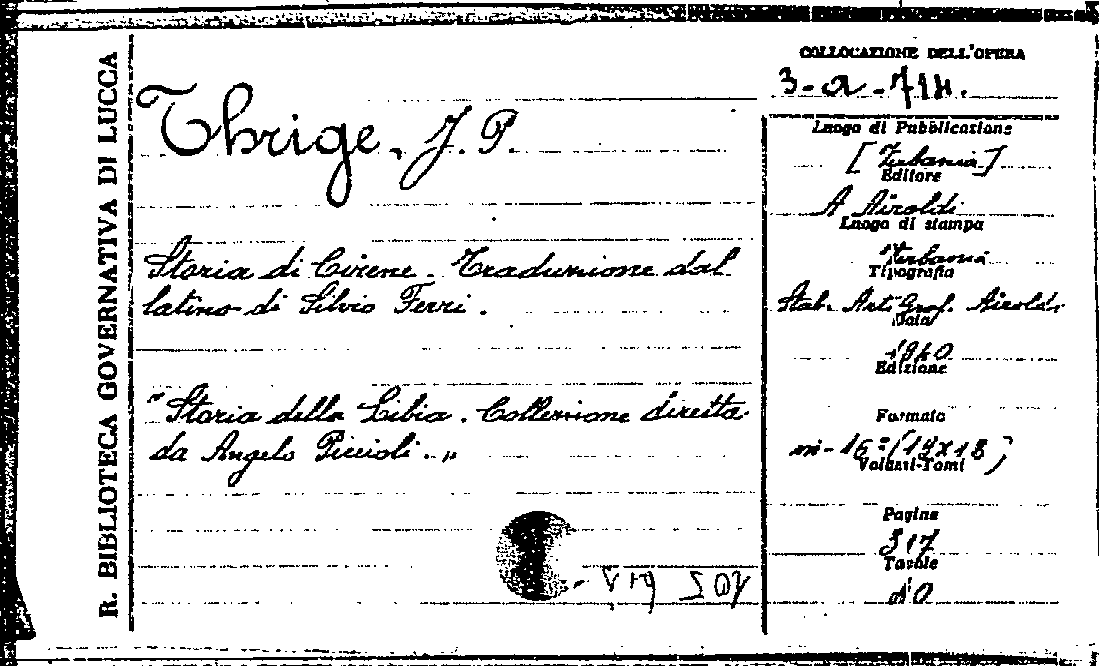 R. BIBLIOTECA GOVERNATIVA DI LUCCA
Thrige, J. P.
Storia di Cirene. Traduzione dal
latino di Silvio Ferri.
"Storia della Libia. Collezione diretta
da Angelo Piccioli."
COLLOCAZIONE DELL'OPERA
3-a-714.
Luogo di Pubblicazione
[Verbania]
Editore
A Airoldi
Luogo di stampa
Verbania
Tipografia
Stab. Arti Graf. Airoldi
Data
1940
Edizione
Formato
in-16°(19x13)
Volumi-Tomi
Pagine
317
Tavole
10